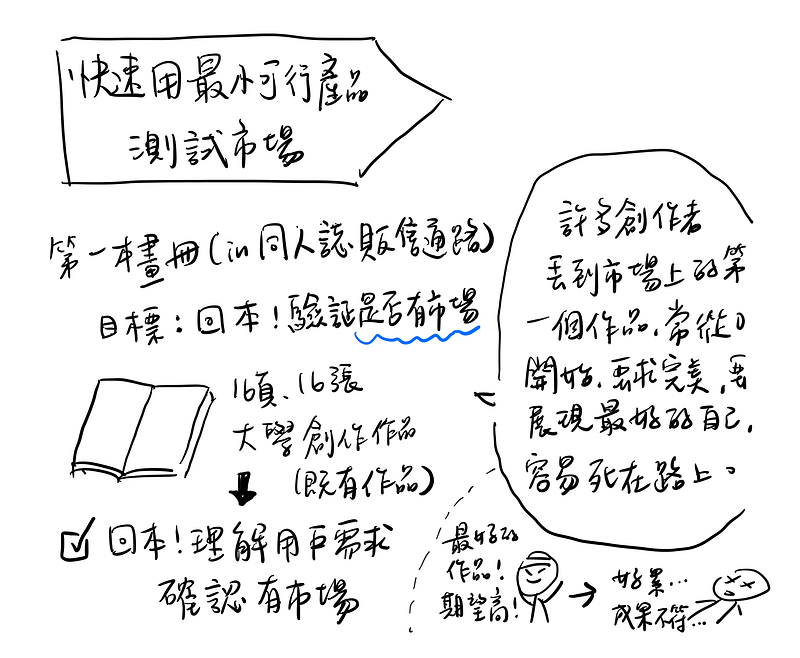 快速用最小可行產品
測試市場
第一本畫冊(in 同人誌販售通路)
目標：回本！驗証是否有市場
16頁、16張
大學創作作品
(既有作品)
回本！理解用戶需求
確認有市場
許多創作者
丟到市場上的第
一個作品，常從0
開始，要求完美，要
展現最好的自己，
容易死在路上。
最好的
作品！
期望高！
好累…
成果不符…